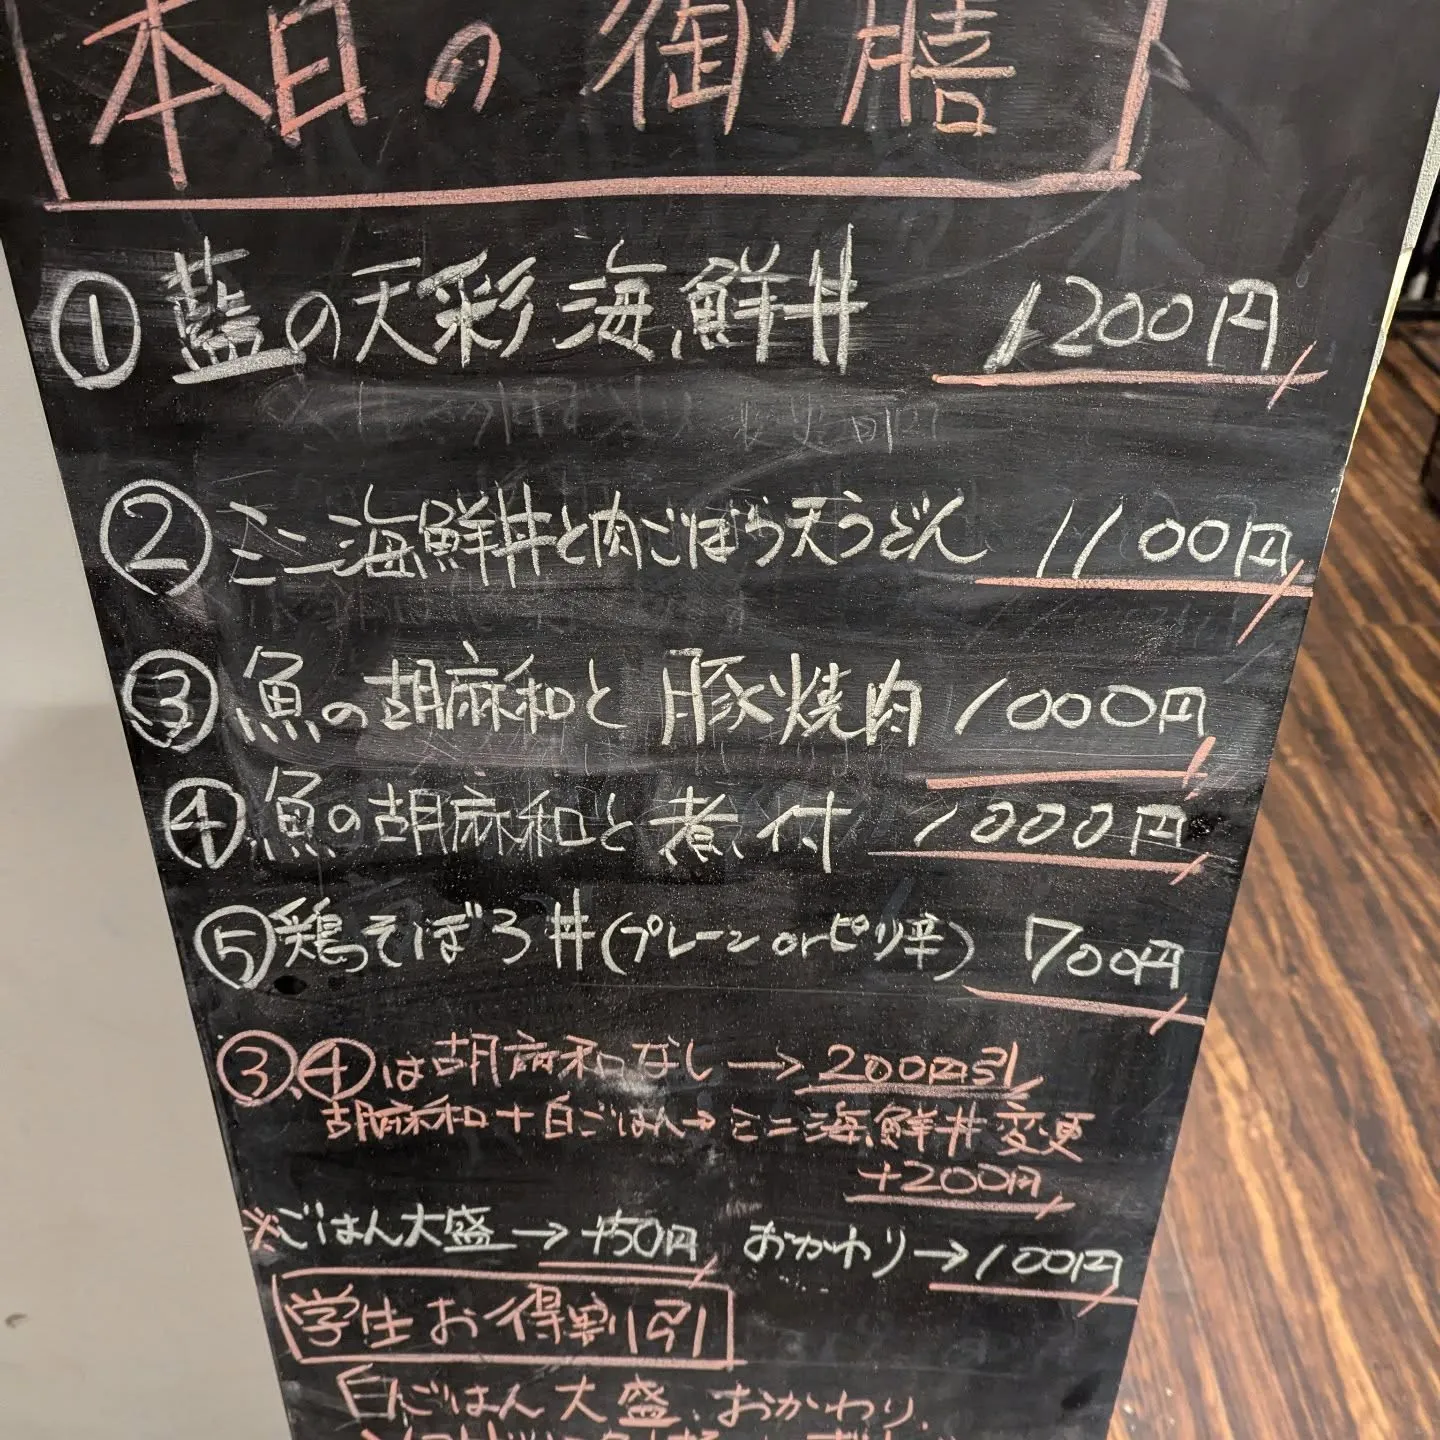 本日の御膳
① 藍の天彩海鮮丼 1200円
② ミニ海鮮丼と肉ごぼう天うどん 1100円
③ 魚の胡麻和と豚焼肉 1000円
④ 魚の胡麻和と煮付 1000円
⑤ 鶏そぼろ丼(プレーンorピリ辛) 700円
③④は胡麻和なし→200円引
胡麻和+白ごはん→ミニ海鮮丼変更
+200円
※ごはん大盛→+50円 おかわり→100円
学生お得割引
白ごはん大盛、おかわり